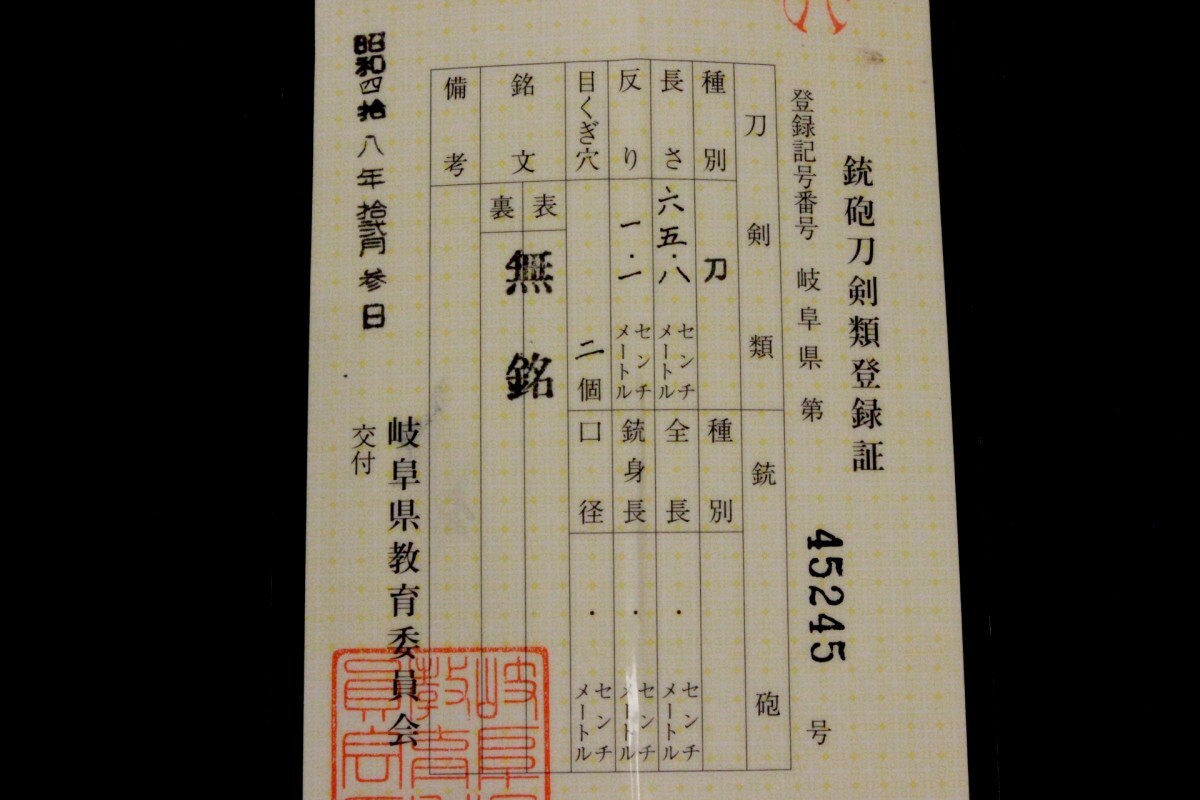 銃砲刀剣類登録証
登録記号番号 岐阜県 第 45245 号
刀剣類
銃砲
種別 刀
長さ 六五・八 センチメートル
反り 一・一 センチメートル
目くぎ穴 二個
銘文 表 裏 無銘
備考
種別
全長 ・ センチメートル
銃身長 ・ センチメートル
口径 ・ センチメートル
昭和四拾八年拾弐月参日
交付
岐阜県教育委員会